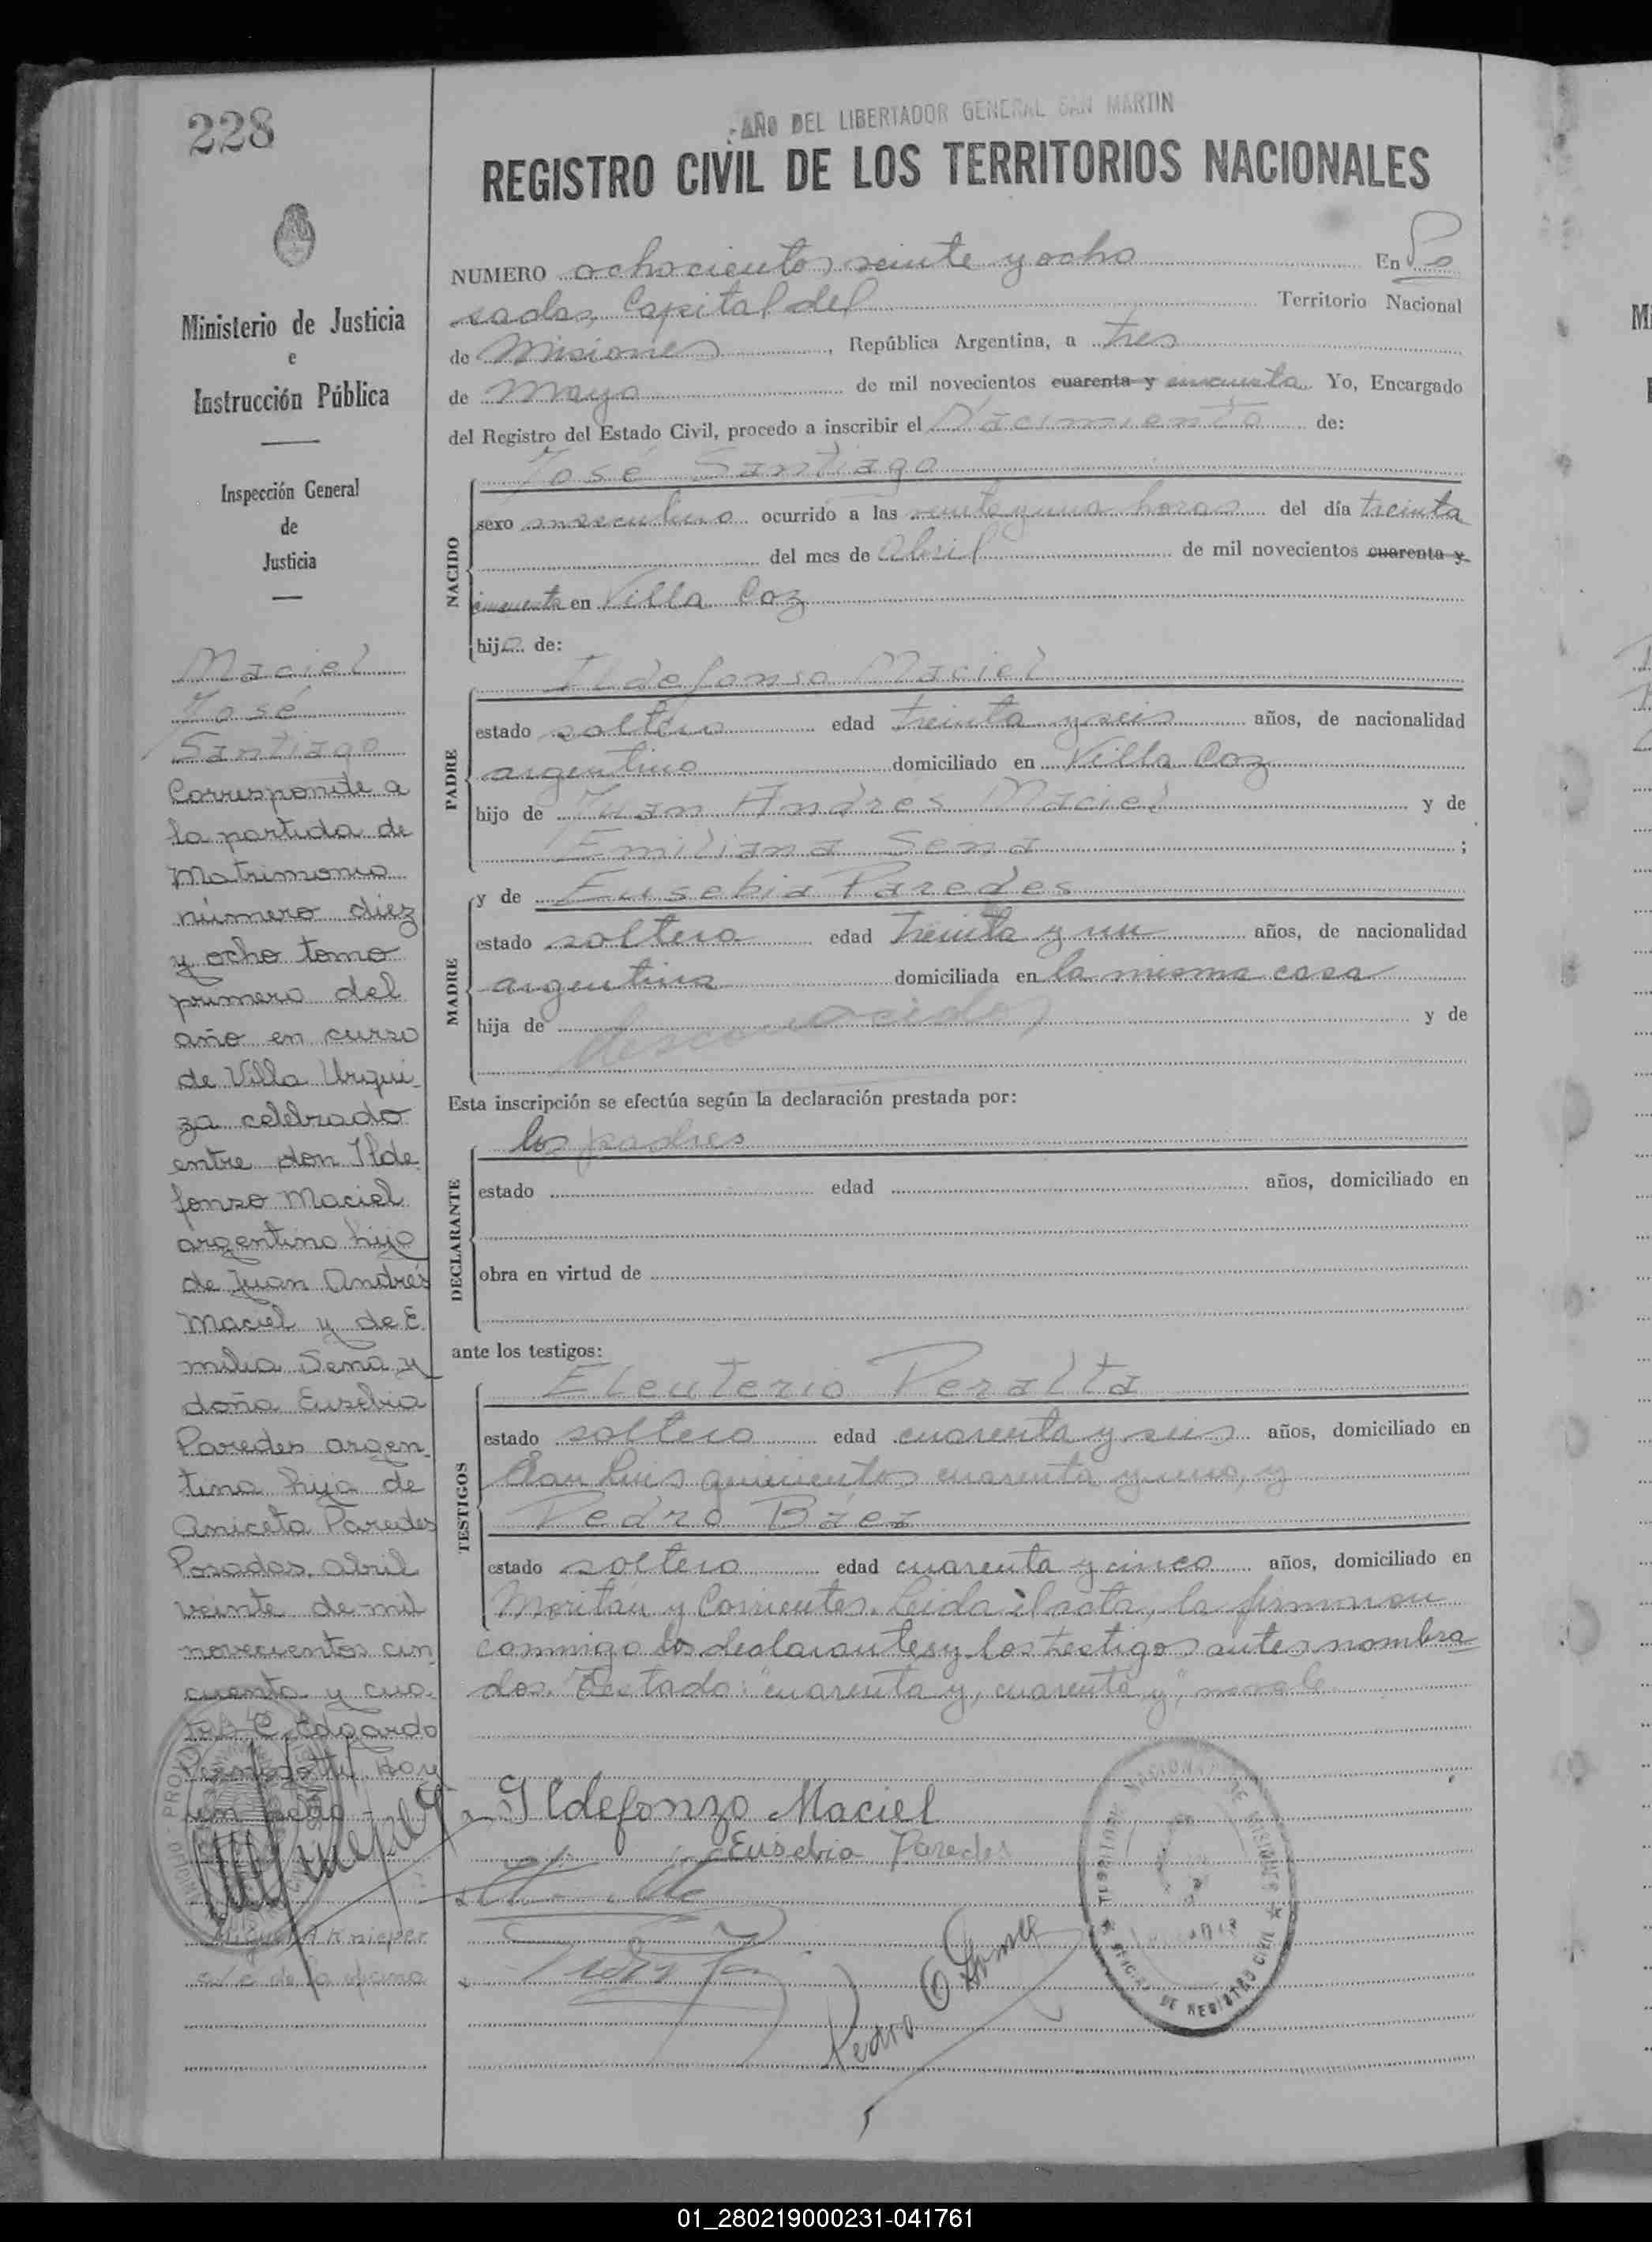 228
AÑO DEL LIBERTADOR GENERAL SAN MARTIN
REGISTRO CIVIL DE LOS TERRITORIOS NACIONALES
Ministerio de Justicia
e
Instrucción Pública
Inspección General
de
Justicia
Maciel
José
Santiago
Corresponde a
la partida de
Matrimonio
número diez
y ocho tomo
primero del
año en curso
de Villa Urqui
za celebrado
entre don Ilde
fonso Maciel
argentino hijo
de Juan Andrés
Maciel y de E
milia Sena y
doña Eusebia
Paredes argen
tina hija de
Aniceta Paredes
Posadas, Abril
veinte de mil
novecientos cin
cuenta y cua
tro C. Edgardo
NUMERO ochocientos veinte y ocho En Po
sadas, Capital del Territorio Nacional
de Misiones, República Argentina, a tres
de Mayo de mil novecientos cuarenta y cincuenta Yo, Encargado
del Registro del Estado Civil, procedo a inscribir el Nacimiento de:
José Santiago
NACIDO
sexo masculino ocurrido a las veinte y una horas del día treinta
del mes de Abril de mil novecientos cuarenta y
cincuenta en Villa Coz
hijo de:
Ildefonso Maciel
PADRE
estado soltero edad treinta y seis años, de nacionalidad
argentino domiciliado en Villa Coz
hijo de Juan Andres Maciel y de
Emiliana Sena;
y de Eusebia Paredes
MADRE
estado soltera edad treinta y un años, de nacionalidad
argentina domiciliada en la misma casa
hija de desconocidos y de
Esta inscripción se efectúa según la declaración prestada por:
los padres
DECLARANTE
estado edad años, domiciliado en
obra en virtud de
ante los testigos:
Eleuterio Peralta
TESTIGOS
estado soltero edad cuarenta y seis años, domiciliado en
San Luis quinientos cuarenta y uno, y
Pedro Báez
estado soltero edad cuarenta y cinco años, domiciliado en
Moritán y Corrientes. Leida el acta, la firmaron
conmigo los declarantes y los testigos antes nombra
dos. Testado: "cuarenta y, cuarenta y", no vale
Ildefonzo Maciel
Eusebia Paredes
Pedro
OFICINA DE REGISTRO CIVIL
01_280219000231-041761